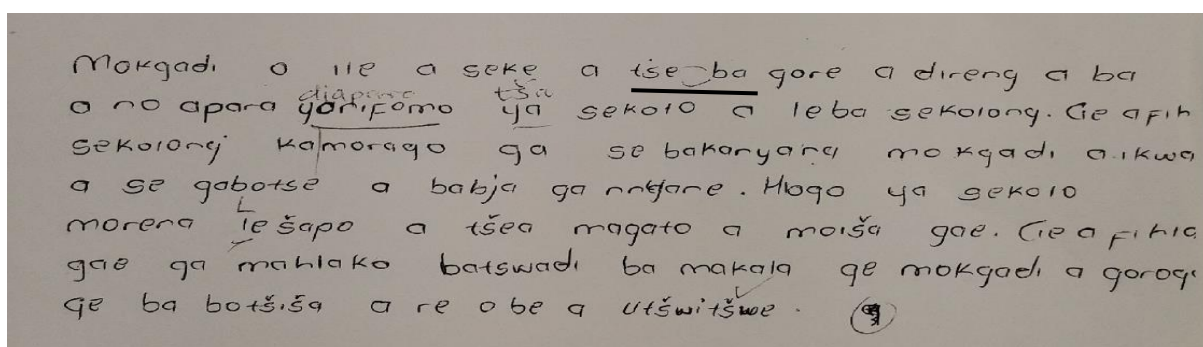 Mokgadi o ile a seke a tše ba gore a direng a ba
diaparo tša
a no apara yonifomo ya sekolo a leba sekolong. Ge a fih
sekolong kamorago ga se bakanyana mokgadi a ikwa
a se gabotse a babja ga nnyane. Hlogo ya sekolo
morena lešapo a tšea magato a moiša gae. Ge a fihla
gae ga mahlako batswadi ba makala ge mokgadi a goroga
ge ba botšiša a re o be a utšwitšwe.